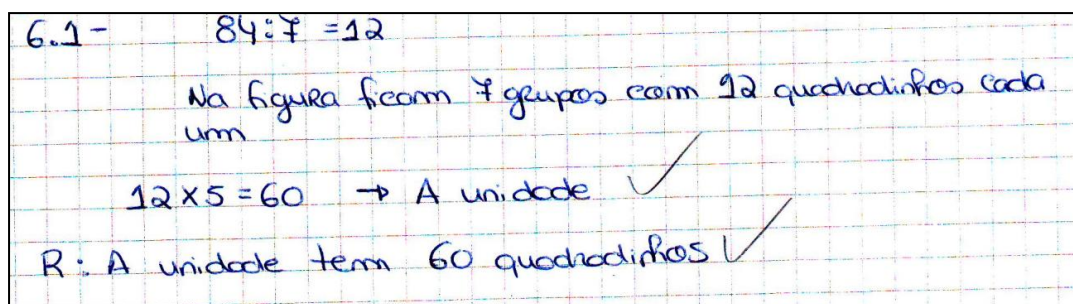 6.1- 84:7 =12
Na figura ficam 7 grupos com 12 quadradinhos cada
um
12 x 5 = 60 → A unidade
R: A unidade tem 60 quadradinhos